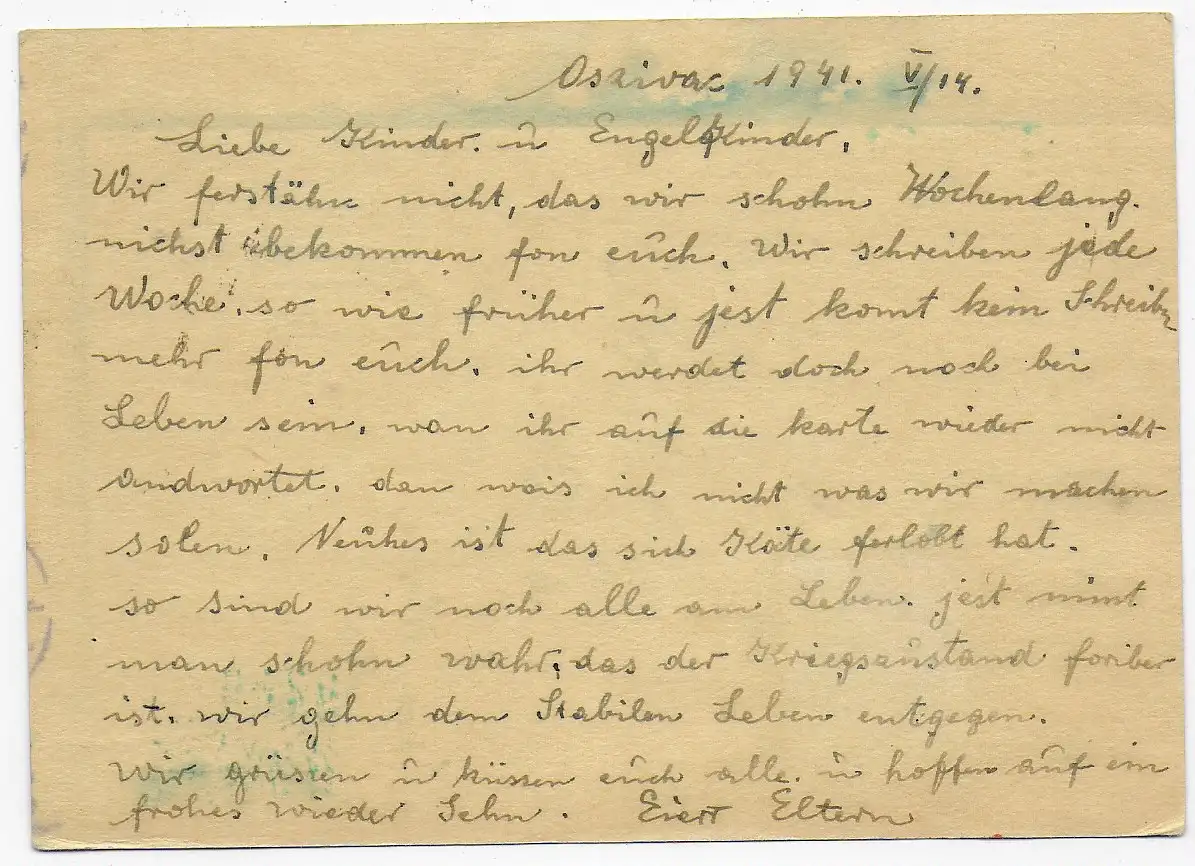 Oszivac 1941. V/14.
Liebe Kinder. u Engelskinder,
Wir ferstähn nicht, das wir schohn Wochenlang.
nichst bekommen fon euch. Wir schreiben jede
Woche, so wie früher u jest komt kein Schreiben
mehr fon euch. ihr werdet doch noch bei
Leben sein. wan ihr auf die karte wieder nicht
andwortet. dan wais ich nicht was wir machen
solen. Neuhes ist das sich Käte ferlobt hat.
so Sind wir noch alle am Leben. jest nimt
man schohn wahr, das der Kriegszustand foriber
ist. wir gehn dem Stabilen Leben entgegen.
Wir grüssen u küssen euch alle. u hoffen auf ein
frohes wieder Sehn. Eierr Eltern